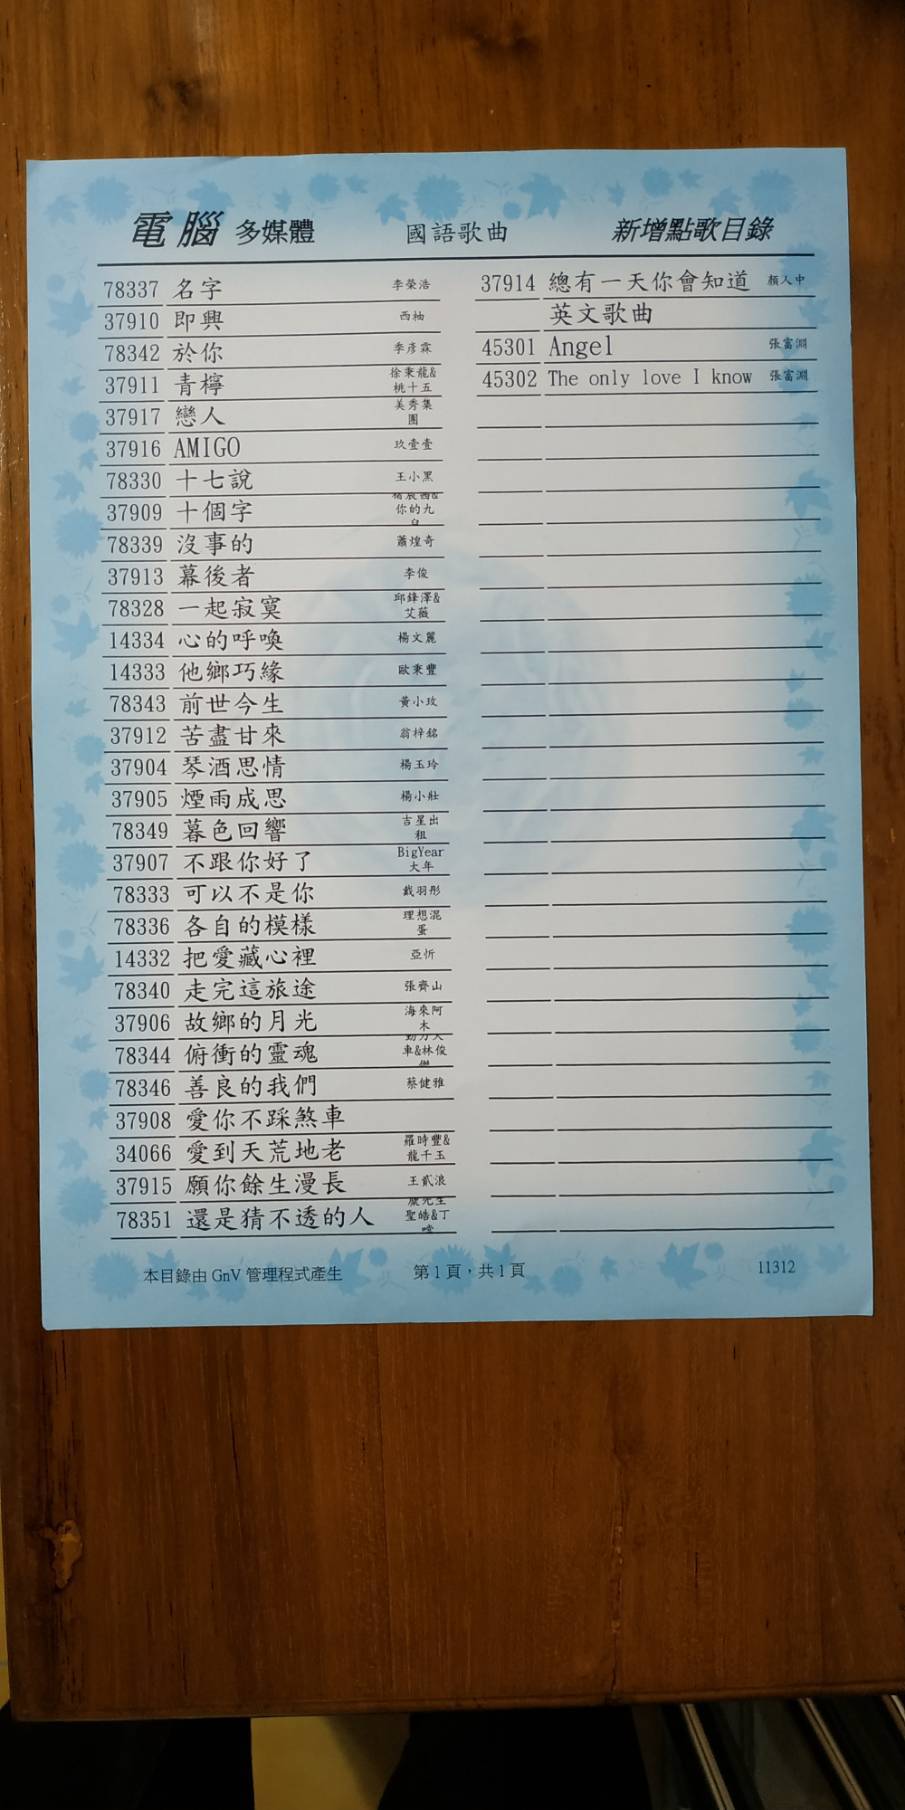 電腦 多媒體 國語歌曲 新增點歌目錄
78337 名字 李榮浩
37910 即興 西柚
78342 於你 李彥霖
37911 青檸 徐秉龍&桃十五
37917 戀人 美秀集團
37916 AMIGO 玖壹壹
78330 十七說 王小黑
37909 十個字 你的九
78339 沒事的 蕭煌奇
37913 幕後者 李俊
78328 一起寂寞 邱鋒澤&艾薇
14334 心的呼喚 楊文麗
14333 他鄉巧緣 歐秉豐
78343 前世今生 黃小玫
37912 苦盡甘來 翁梓銘
37904 琴酒思情 楊玉玲
37905 煙雨成思 楊小壯
78349 暮色回響 吉星出租
37907 不跟你好了 BigYear大年
78333 可以不是你 戴羽彤
78336 各自的模樣 理想混蛋
14332 把愛藏心裡 亞忻
78340 走完這旅途 張齊山
37906 故鄉的月光 海來阿木
78344 俯衝的靈魂 車&林俊
78346 善良的我們 蔡健雅
37908 愛你不踩煞車
34066 愛到天荒地老 羅時豐&龍千玉
37915 願你餘生漫長 王貳浪
78351 還是猜不透的人 聖皓&丁
37914 總有一天你會知道 顏人中
英文歌曲
45301 Angel 張富淵
45302 The only love I know 張富淵
本目錄由 GnV 管理程式產生 第1頁，共1頁 11312